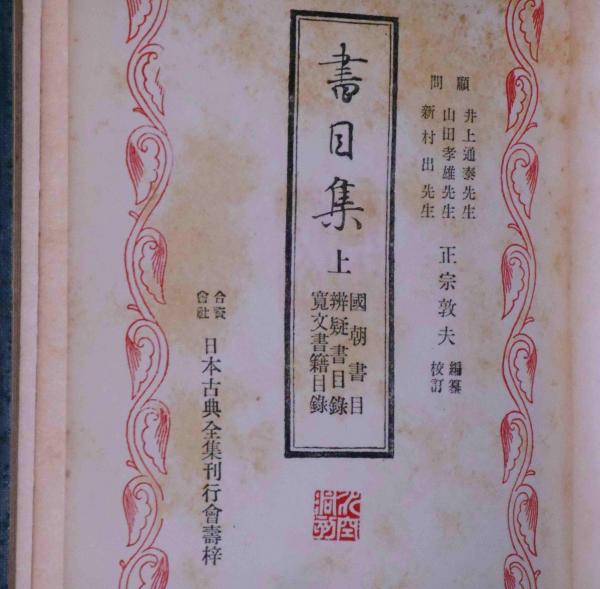 顧問
井上通泰先生
山田孝雄先生
新村出先生
正宗敦夫
編纂
校訂
書目集
上
國朝書目
辨疑書目錄
寬文書籍目錄
合資
會社
日本古典全集刊行會壽梓